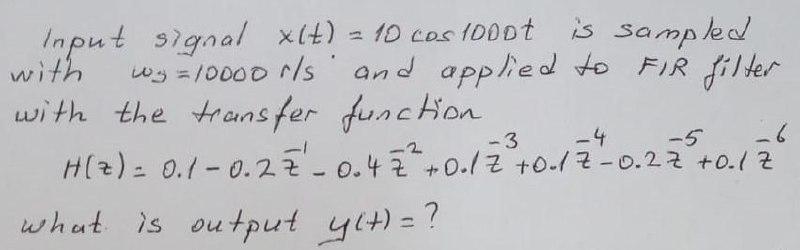 Input signal x(t) = 10 cos 1000t is sampled
with ωs = 10000 r/s and applied to FIR filter
with the transfer function
H(z) = 0.1 - 0.2 z⁻¹ - 0.4 z⁻² + 0.1 z⁻³ + 0.1 z⁻⁴ - 0.2 z⁻⁵ + 0.1 z⁻⁶
what is output y(t) = ?